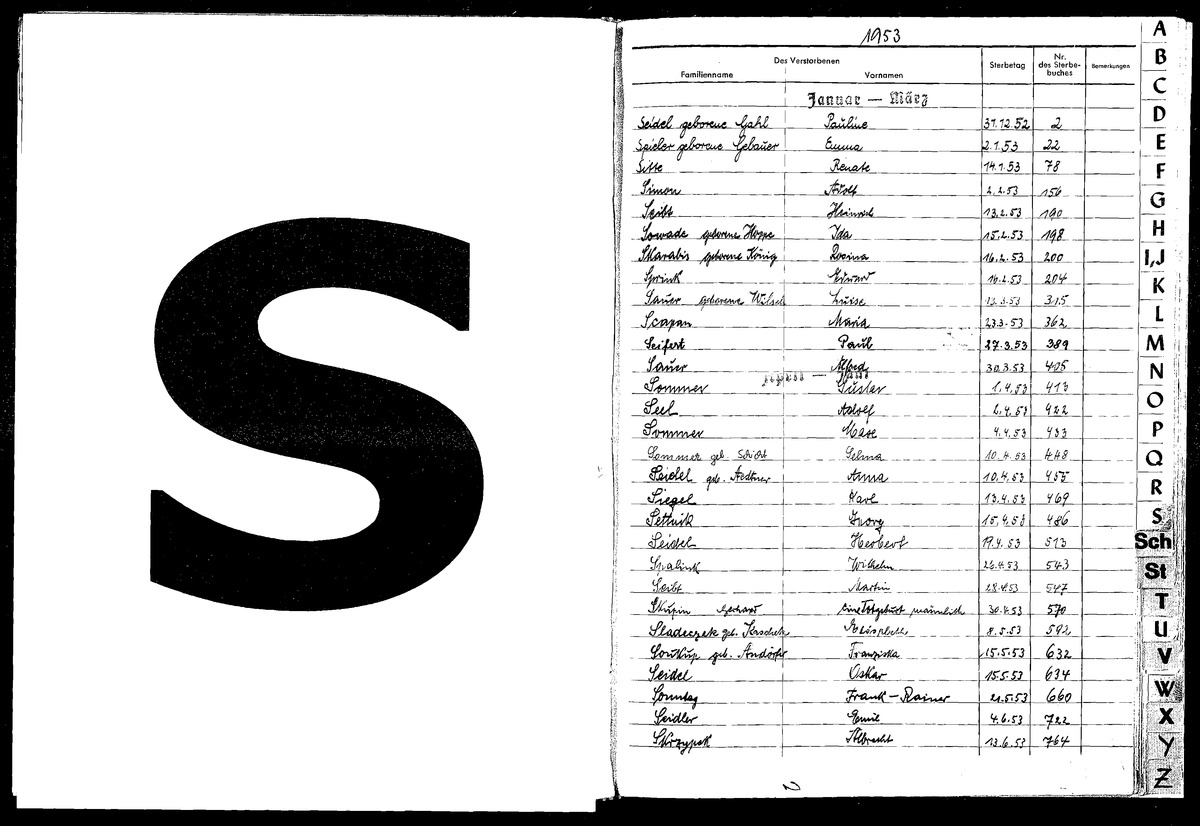 S
1953
Des Verstorbenen
Familienname Vornamen Sterbetag Nr. des Sterbe-buches Bemerkungen
Januar — März
Seidel geborene Gahl Pauline 31.12.52 2
Spieler geborene Gebauer Emma 2.1.53 22
Sitte Renate 14.1.53 78
Simon Adolf 2.2.53 156
Seibt Heinrich 13.2.53 190
Sowade geborene Hoppe Ida 15.2.53 198
Skarabis geborene König Rosina 16.2.53 200
Sprink Eduard 16.2.53 204
Sauer geborene Luise 13.3.53 315
Scapan Maria 23.3.53 362
Seifert Paul 27.3.53 389
Sauer Alfred 30.3.53 405
Sommer Gustav 1.4.53 413
Seel Adolf 2.4.53 422
Sommer 4.4.53 433
Sommer geb. Schicht Selma 10.4.53 448
Seidel geb. Anna 10.4.53 455
Siegel Karl 13.4.53 469
Settnik Georg 15.4.53 486
Seidel Herbert 19.4.53 513
Spalink Wilhelm 26.4.53 543
Seibt Martin 28.4.53 547
Skupin Gerhard eine Totgeburt männlich 30.4.53 570
Sladeczek geb. Elisabeth 8.5.53 592
Soukup geb. Andörfer Franziska 15.5.53 632
Seidel Oskar 15.5.53 634
Sonntag Frank-Rainer 21.5.53 660
Seidler Emil 4.6.53 722
Skrzypek Albrecht 13.6.53 764
A
B
C
D
E
F
G
H
I,J
K
L
M
N
O
P
Q
R
S
Sch
St
T
U
V
W
X
Y
Z